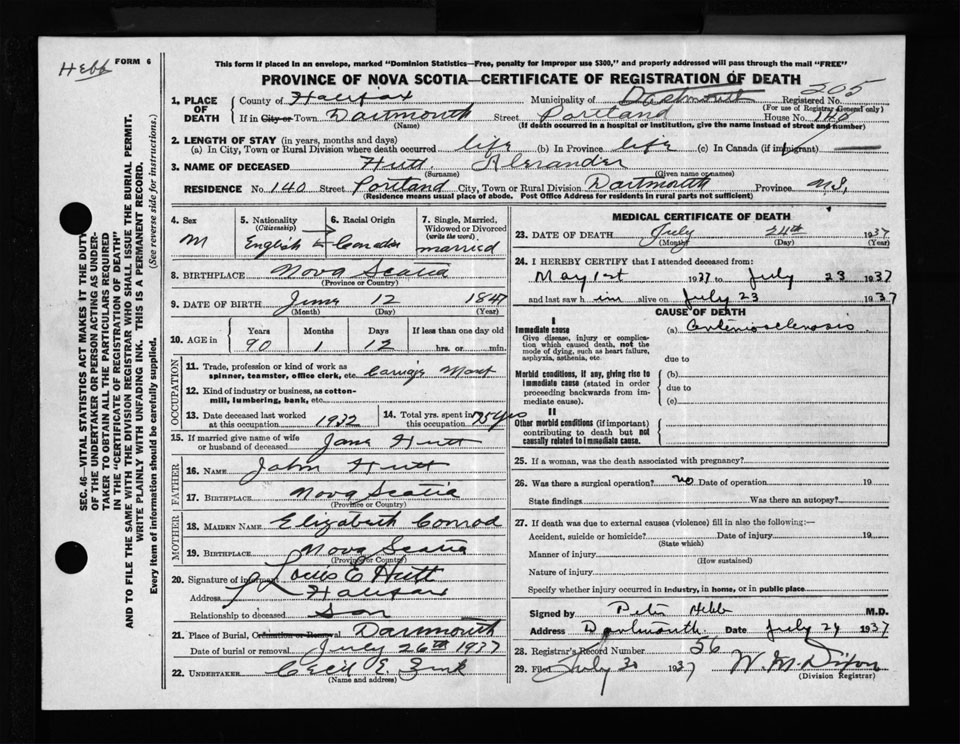 Hebb
FORM 6
This form if placed in an envelope, marked "Dominion Statistics—Free, penalty for improper use $300," and properly addressed will pass through the mail "FREE"
PROVINCE OF NOVA SCOTIA—CERTIFICATE OF REGISTRATION OF DEATH
205
1. PLACE OF DEATH
County of Halifax Municipality of Dartmouth Registered No.
(For use of Registrar General only)
If in City or Town Dartmouth Street Portland House No. 140
(Name) (If death occurred in a hospital or institution, give the name instead of street and number)
2. LENGTH OF STAY (in years, months and days)
(a) In City, Town or Rural Division where death occurred life (b) In Province life (c) In Canada (if immigrant)
3. NAME OF DECEASED Hutt Alexander
(Surname) (Given name or names)
RESIDENCE No. 140 Street Portland City, Town or Rural Division Dartmouth Province N.S.
(Residence means usual place of abode. Post Office Address for residents in rural parts not sufficient)
4. Sex M
5. Nationality (Citizenship) English
6. Racial Origin Canadian
7. Single, Married, Widowed or Divorced (write the word) married
8. BIRTHPLACE Nova Scotia
(Province or Country)
9. DATE OF BIRTH June 12 1847
(Month) (Day) (Year)
10. AGE in Years Months Days If less than one day old
90 1 12 hrs. or min.
OCCUPATION
11. Trade, profession or kind of work as spinner, teamster, office clerk, etc. Carriage
12. Kind of industry or business, as cotton-mill, lumbering, bank, etc.
13. Date deceased last worked at this occupation 1932
14. Total yrs. spent in this occupation 75 yrs
15. If married give name of wife or husband of deceased Jane Hutt
FATHER
16. NAME John Hutt
17. BIRTHPLACE Nova Scotia
(Province or Country)
MOTHER
18. MAIDEN NAME Elizabeth Conrod
19. BIRTHPLACE Nova Scotia
(Province or Country)
20. Signature of informant Louis E Hutt
Address Halifax
Relationship to deceased Son
21. Place of Burial, Cremation or Removal Dartmouth
Date of burial or removal July 26th 1937
22. UNDERTAKER Cecil E. Zink
(Name and address)
MEDICAL CERTIFICATE OF DEATH
23. DATE OF DEATH July 24th 1937
(Month) (Day) (Year)
24. I HEREBY CERTIFY that I attended deceased from:
May 1st 1937 to July 23 1937
and last saw him alive on July 23 1937
CAUSE OF DEATH
I
Immediate cause (a) Arteriosclerosis
Give disease, injury or complication which caused death, not the mode of dying, such as heart failure, asphyxia, asthenia, etc.
due to
Morbid conditions, if any, giving rise to immediate cause (stated in order proceeding backwards from immediate cause).
(b)
due to
(c)
II
Other morbid conditions (if important) contributing to death but not causally related to immediate cause.
25. If a woman, was the death associated with pregnancy?
26. Was there a surgical operation? no Date of operation 19
State findings Was there an autopsy?
27. If death was due to external causes (violence) fill in also the following:—
Accident, suicide or homicide? Date of injury 19
(State which)
Manner of injury
(How sustained)
Nature of injury
Specify whether injury occurred in industry, in home, or in public place
Signed by Peter Hebb M.D.
Address Dartmouth Date July 24 1937
28. Registrar's Record Number 56
29. Filed July 30 1937 W. M. Dixon
(Division Registrar)
SEC. 46—VITAL STATISTICS ACT MAKES IT THE DUTY
OF THE UNDERTAKER OR PERSON ACTING AS UNDER-
TAKER TO OBTAIN ALL THE PARTICULARS REQUIRED
IN THE "CERTIFICATE OF REGISTRATION OF DEATH"
AND TO FILE THE SAME WITH THE DIVISION REGISTRAR WHO SHALL ISSUE THE BURIAL PERMIT.
WRITE PLAINLY WITH UNFADING INK. THIS IS A PERMANENT RECORD.
Every item of information should be carefully supplied. (See reverse side for instructions.)